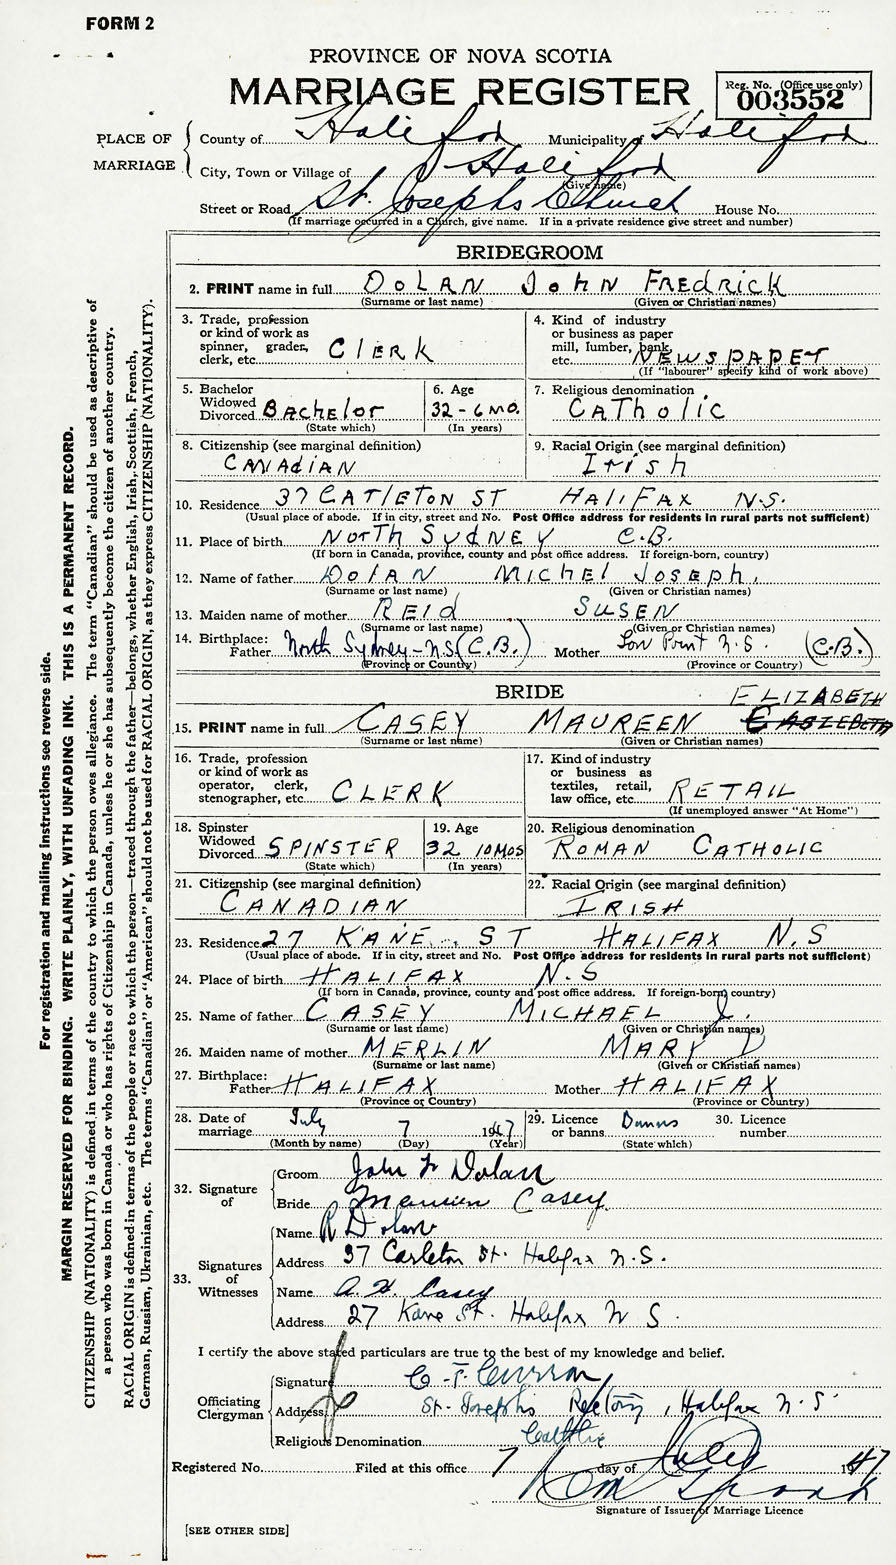 FORM 2
PROVINCE OF NOVA SCOTIA
MARRIAGE REGISTER
Reg. No. (Office use only)
003552
PLACE OF MARRIAGE
County of Halifax Municipality of Halifax
City, Town or Village of Halifax
(Give name)
Street or Road St. Josephs Church House No.
(If marriage occurred in a Church, give name. If in a private residence give street and number)
BRIDEGROOM
2. PRINT name in full DOLAN JOHN FREDRICK
(Surname or last name) (Given or Christian names)
3. Trade, profession
or kind of work as
spinner, grader,
clerk, etc. CLERK
4. Kind of industry
or business as paper
mill, lumber, bank,
etc. NEWSPAPER
(If "labourer" specify kind of work above)
5. Bachelor
Widowed
Divorced BAchelor
(State which)
6. Age
32-6 MO.
(In years)
7. Religious denomination
CATholic
8. Citizenship (see marginal definition)
CANAdiAN
9. Racial Origin (see marginal definition)
Irish
10. Residence 37 CArlETON ST HALIFAX N.S.
(Usual place of abode. If in city, street and No. Post Office address for residents in rural parts not sufficient)
11. Place of birth NORTH SYdNEY C.B.
(If born in Canada, province, county and post office address. If foreign-born, country)
12. Name of father DOlAN MICHEl JOSEPH.
(Surname or last name) (Given or Christian names)
13. Maiden name of mother REId SUSEN
(Surname or last name) (Given or Christian names)
14. Birthplace:
Father North Sydney-N.S (C.B.) Mother Low Point N.S. (C.B.)
(Province or Country) (Province or Country)
BRIDE
ELIZABETH
15. PRINT name in full CASEY MAUREEN
(Surname or last name) (Given or Christian names)
16. Trade, profession
or kind of work as
operator, clerk,
stenographer, etc. CLERK
17. Kind of industry
or business as
textiles, retail,
law office, etc. RETAIL
(If unemployed answer "At Home")
18. Spinster
Widowed
Divorced SPINSTER
(State which)
19. Age
32 10 MOS
(In years)
20. Religious denomination
ROMAN CATHOLIC
21. Citizenship (see marginal definition)
CANADIAN
22. Racial Origin (see marginal definition)
IRISH
23. Residence 27 KANE ST HALIFAX N.S
(Usual place of abode. If in city, street and No. Post Office address for residents in rural parts not sufficient)
24. Place of birth HALIFAX N.S
(If born in Canada, province, county and post office address. If foreign-born, country)
25. Name of father CASEY MICHAEL J.
(Surname or last name) (Given or Christian names)
26. Maiden name of mother MERLIN MARY D
(Surname or last name) (Given or Christian names)
27. Birthplace:
Father HALIFAX Mother HALIFAX
(Province or Country) (Province or Country)
28. Date of
marriage July 7 1947
(Month by name) (Day) (Year)
29. Licence
or banns Banns
(State which)
30. Licence
number
32. Signature of
Groom John F Dolan
Bride Maureen Casey
33. Signatures of Witnesses
Name R Dolan
Address 37 Carleton St. Halifax N.S.
Name A. H. Casey
Address 27 Kane St. Halifax N S.
I certify the above stated particulars are true to the best of my knowledge and belief.
Officiating Clergyman
Signature C. T. Curran
Address St. Josephs Rectory, Halifax N.S
Religious Denomination Catholic
Registered No. Filed at this office 7 day of July 1947
Signature of Issuer of Marriage Licence
[SEE OTHER SIDE]
For registration and mailing instructions see reverse side.
MARGIN RESERVED FOR BINDING. WRITE PLAINLY, WITH UNFADING INK. THIS IS A PERMANENT RECORD.
CITIZENSHIP (NATIONALITY) is defined in terms of the country to which the person owes allegiance. The term "Canadian" should be used as descriptive of
a person who was born in Canada or who has rights of Citizenship in Canada, unless he or she has subsequently become the citizen of another country.
RACIAL ORIGIN is defined in terms of the people or race to which the person—traced through the father—belongs, whether English, Irish, Scottish, French,
German, Russian, Ukrainian, etc. The terms "Canadian" or "American" should not be used for RACIAL ORIGIN, as they express CITIZENSHIP (NATIONALITY).